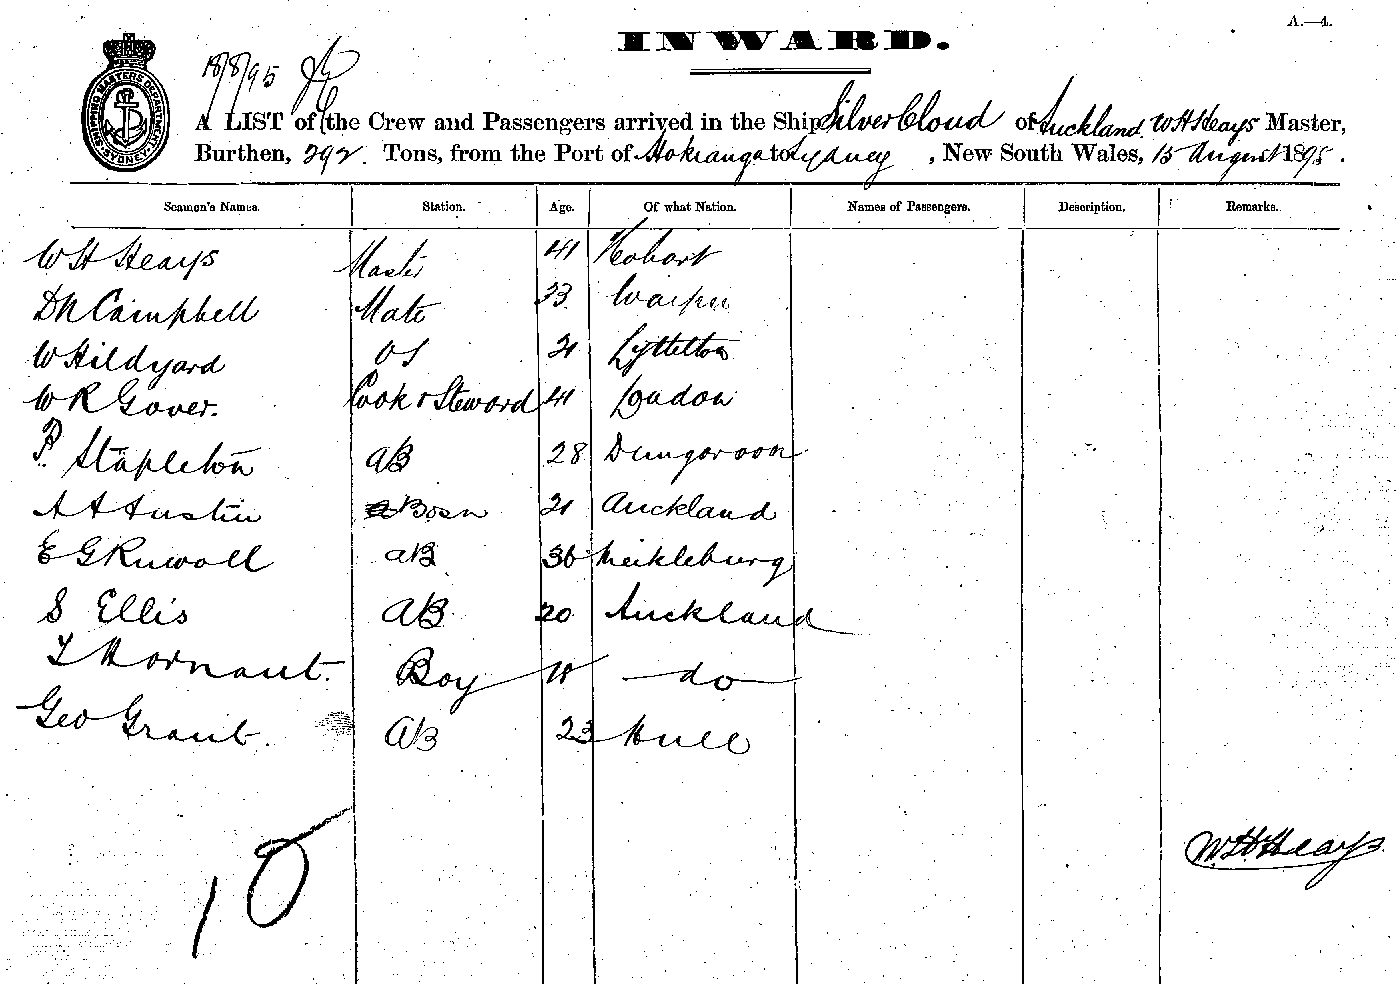 A.—4.
INWARD.
SHIPPING MASTER'S DEPARTMENT SYDNEY
18/8/95
A LIST of the Crew and Passengers arrived in the Ship Silver Cloud of Auckland, W H Heays Master,
Burthen, 292. Tons, from the Port of Hokianga to Sydney, New South Wales, 15 August 1895.
Seamen's Names. Station. Age. Of what Nation. Names of Passengers. Description. Remarks.
W H Heays Master 41 Hobart
D N Campbell Mate 33 Waipu
W Hildyard OS 21 Lyttelton
W R Gover. Cook & Steward 41 London
P. Stapleton AB 28 Dungaroon
A A Austin Bosn 21 Auckland
E G Ruwoll AB 36 Meikleburg
S Ellis AB 20 Auckland
Boy 18 do
Geo Grant. AB 23 Hull
10
W. H Heays